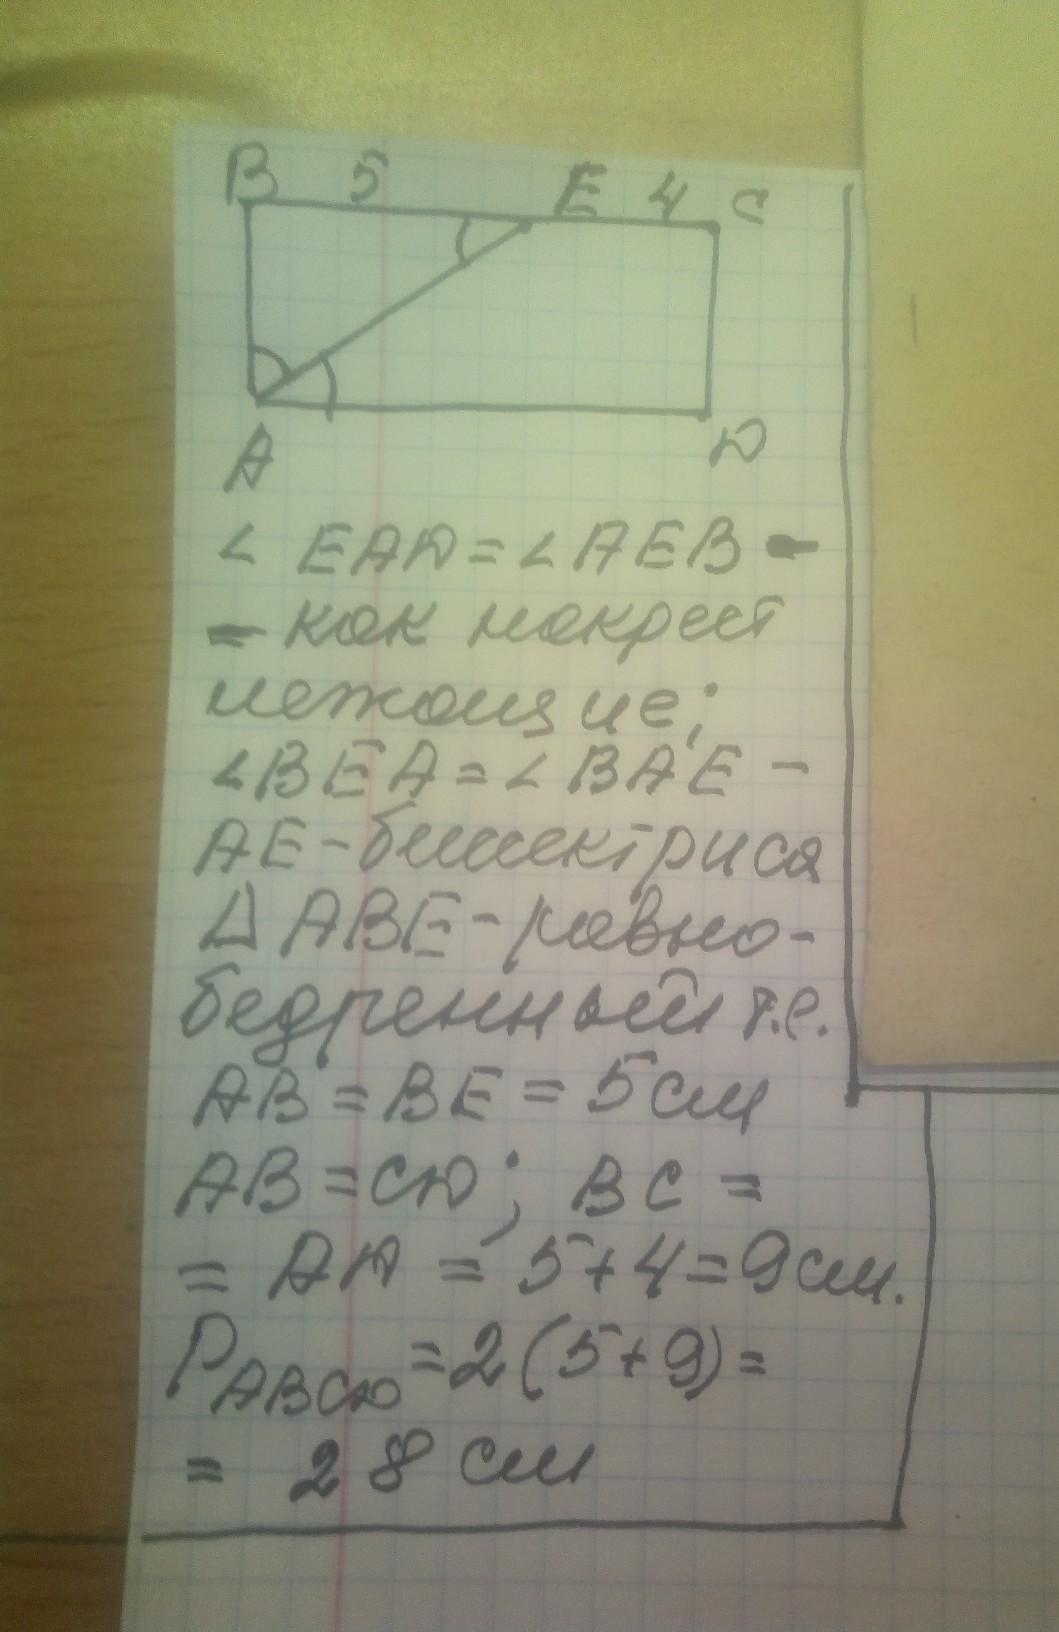 В 5 Е 4 С
А D
∠ EAD = ∠ AEB -
- как накрест
лежащие;
∠BEA = ∠ BAE -
AE - биссектриса
△ ABE - равно-
бедренный т.е.
AB = BE = 5 см
AB = CD; BC =
= AD = 5 + 4 = 9 см.
P ABCD = 2 (5 + 9) =
= 28 см